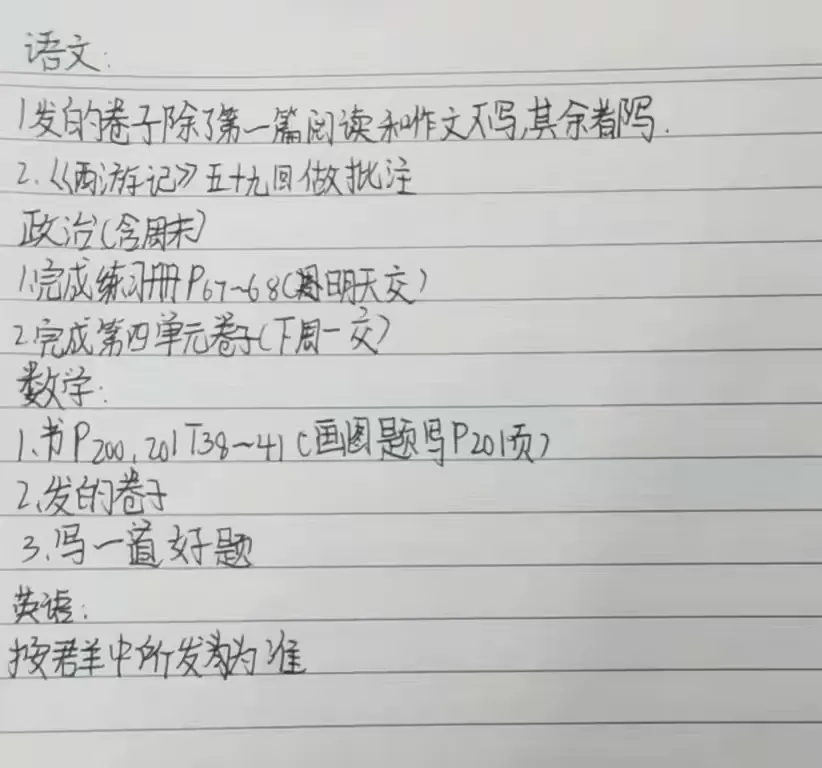 语文:
1发的卷子除了第一篇阅读和作文不写,其余都写.
2.《西游记》五十九回做批注
政治(含周末)
1.完成练习册P67~68(明天交)
2.完成第四单元卷子(下周一交)
数学:
1、书P200,201T38~41(画图题写P201页)
2、发的卷子
3、写一道好题
英语:
按群中所发为准